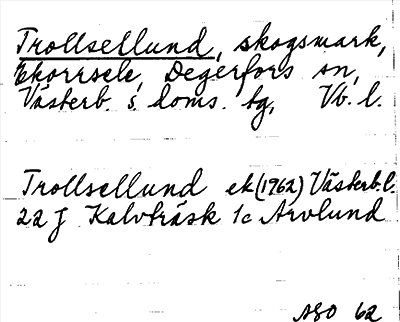 Trollsellund, skogsmark,
Ekorrsele, Degerfors sn,
Västerb. s. doms. tg, Vb. l.
Trollsellund ek (1962) Västerb. l.
22 J Kalvträsk 1c Arvlund
ASO 62